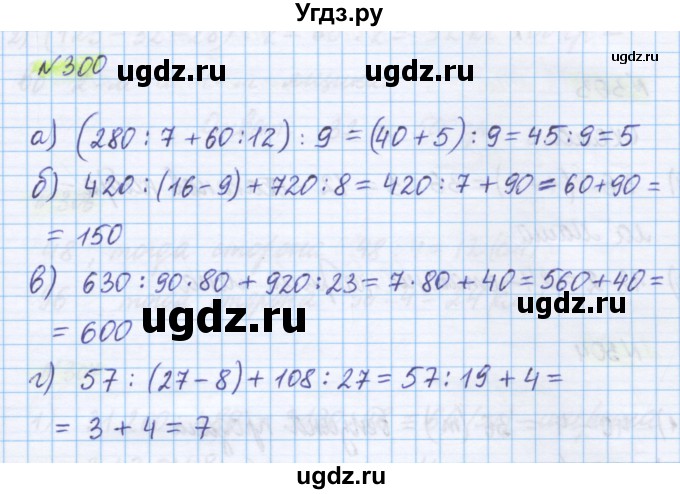 Угдз.ру
№300
ugdz.ru ugdz.ru
а) (280:7+60:12):9=(40+5):9=45:9=5
ugdz.ru ugdz.ru
б) 420:(16-9)+720:8=420:7+90=60+90=
=150
в) 630:90·80+920:23=7·80+40=560+40=
=600
ugdz.ru ugdz.ru
г) 57:(27-8)+108:27=57:19+4=
=3+4=7
ugdz.ru ugdz.ru
ugdz.ru